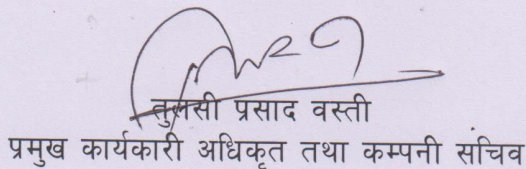 तुलसी प्रसाद वस्ती
प्रमुख कार्यकारी अधिकृत तथा कम्पनी सचिव